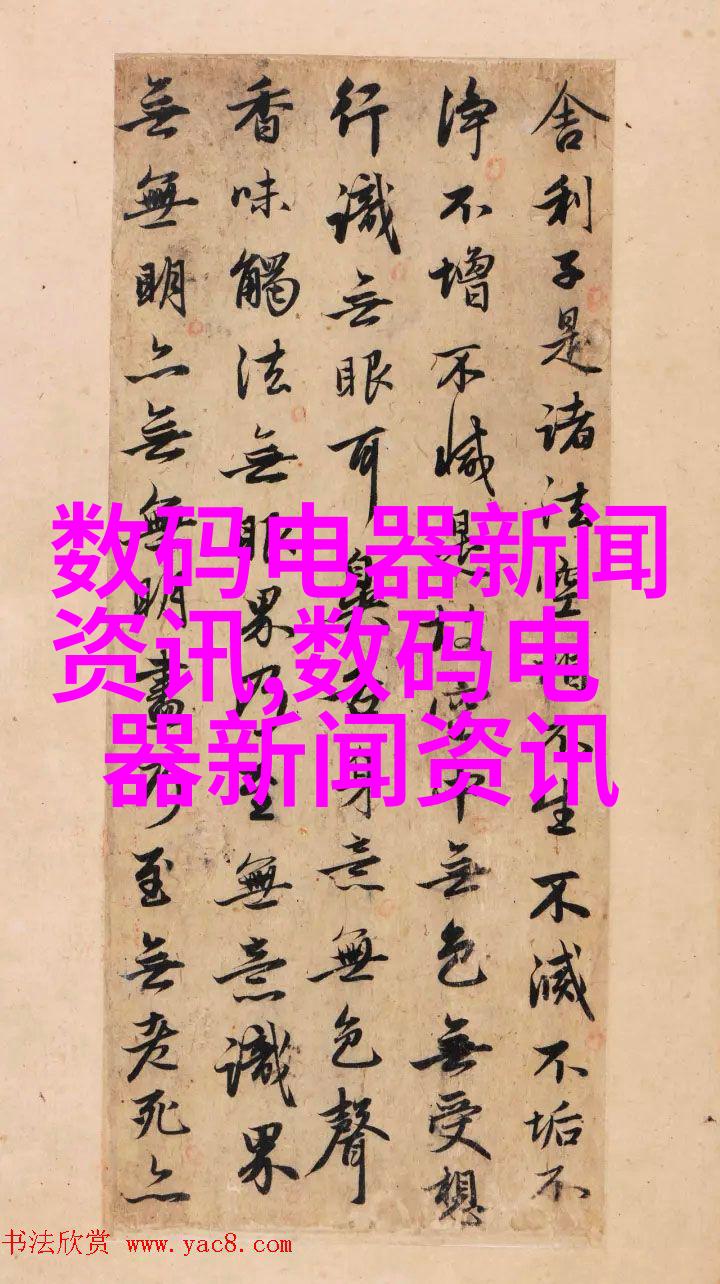 舍利子是諸法空相不生不滅不垢不
淨不增不減是故空中無色無受想
行識無眼耳鼻舌身意無色聲
香味觸法無眼界乃至無意識界
無無明亦無無明盡乃至無老死亦
数码电器新闻
资讯,数码电
器新闻资讯
书法欣赏 www.yac8.com